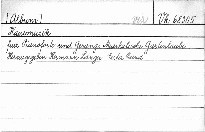 [Album]
Vk. 68305
Hausmusik
für Pianoforte und Gesang. Musikalische Gartenlaube
Herausgegeben Hermann Langer. Erster Band